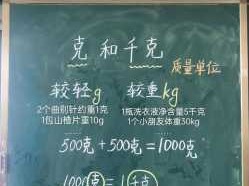 克和千克
质量单位
较轻g 较重kg
2个曲别针约重1克 1瓶洗衣液净含量5千克
1包山楂片重10g 1个小朋友体重30kg
...... ......
500克+500克=1000克
1000克=1千克